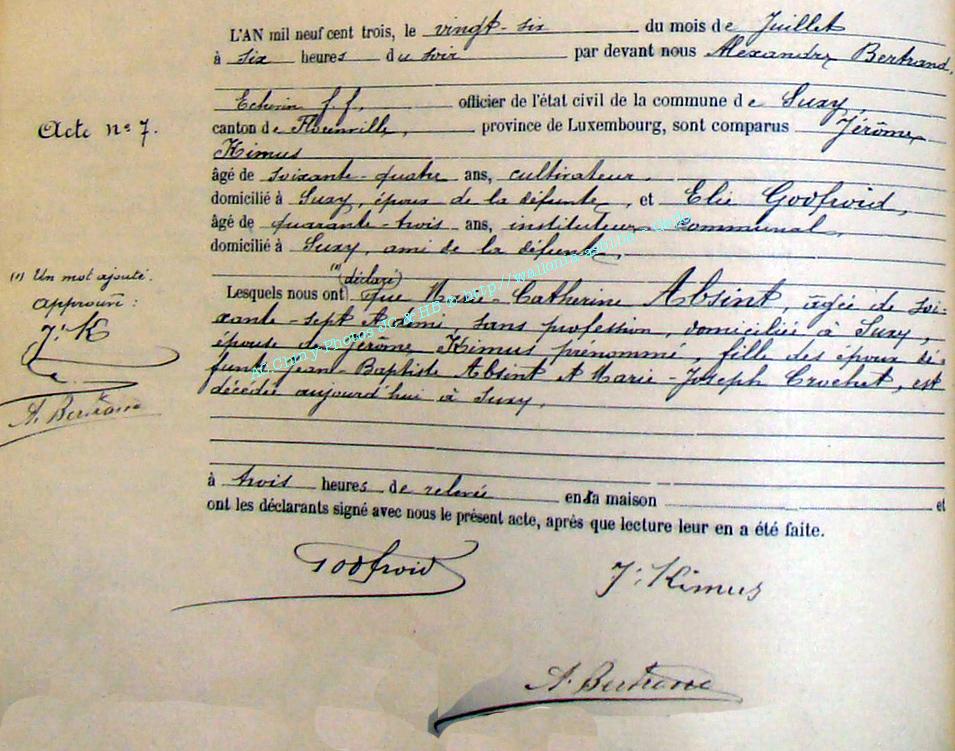 L'AN mil neuf cent trois, le vingt-six du mois de Juillet
à six heures du soir par devant nous Alexandre Bertrand,
Echevin f.f. officier de l'état civil de la commune de Suxy,
Acte n° 7.
canton de Florenville, province de Luxembourg, sont comparus Jérôme
Kimus
âgé de soixante-quatre ans, cultivateur,
domicilié à Suxy, époux de la défunte, et Elie Godfroid,
âgé de quarante-trois ans, instituteur communal,
domicilié à Suxy, ami de la défunte,
(1) Un mot ajouté.
approuvé :
J. K
A. Bertrand
(1) (déclaré)
Lesquels nous ont que Marie-Catherine Absint, âgée de soi-
xante-sept ans, sans profession, domiciliée à Suxy,
épouse de Jérôme Kimus prénommé, fille des époux dé-
funts Jean-Baptiste Absint et Marie-Joseph Crochet, est
décédée aujourd'hui à Suxy,
à trois heures de relevée en sa maison et
ont les déclarants signé avec nous le présent acte, après que lecture leur en a été faite.
Godfroid
J. Kimus
A. Bertrand